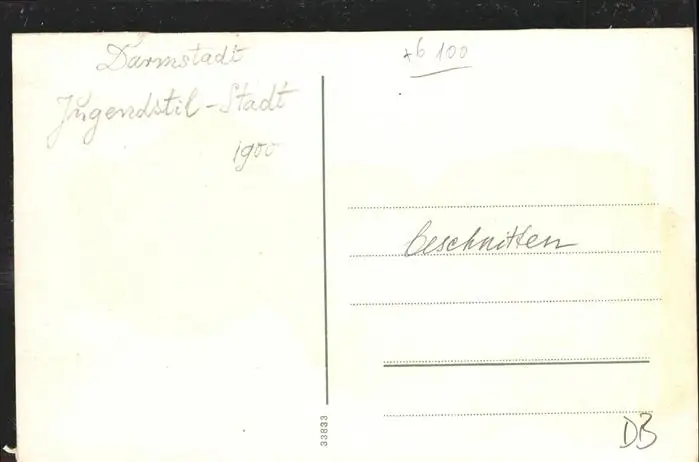 Darmstadt
Jugendstil-Stadt
1900
100
beschnitten
33833
DB